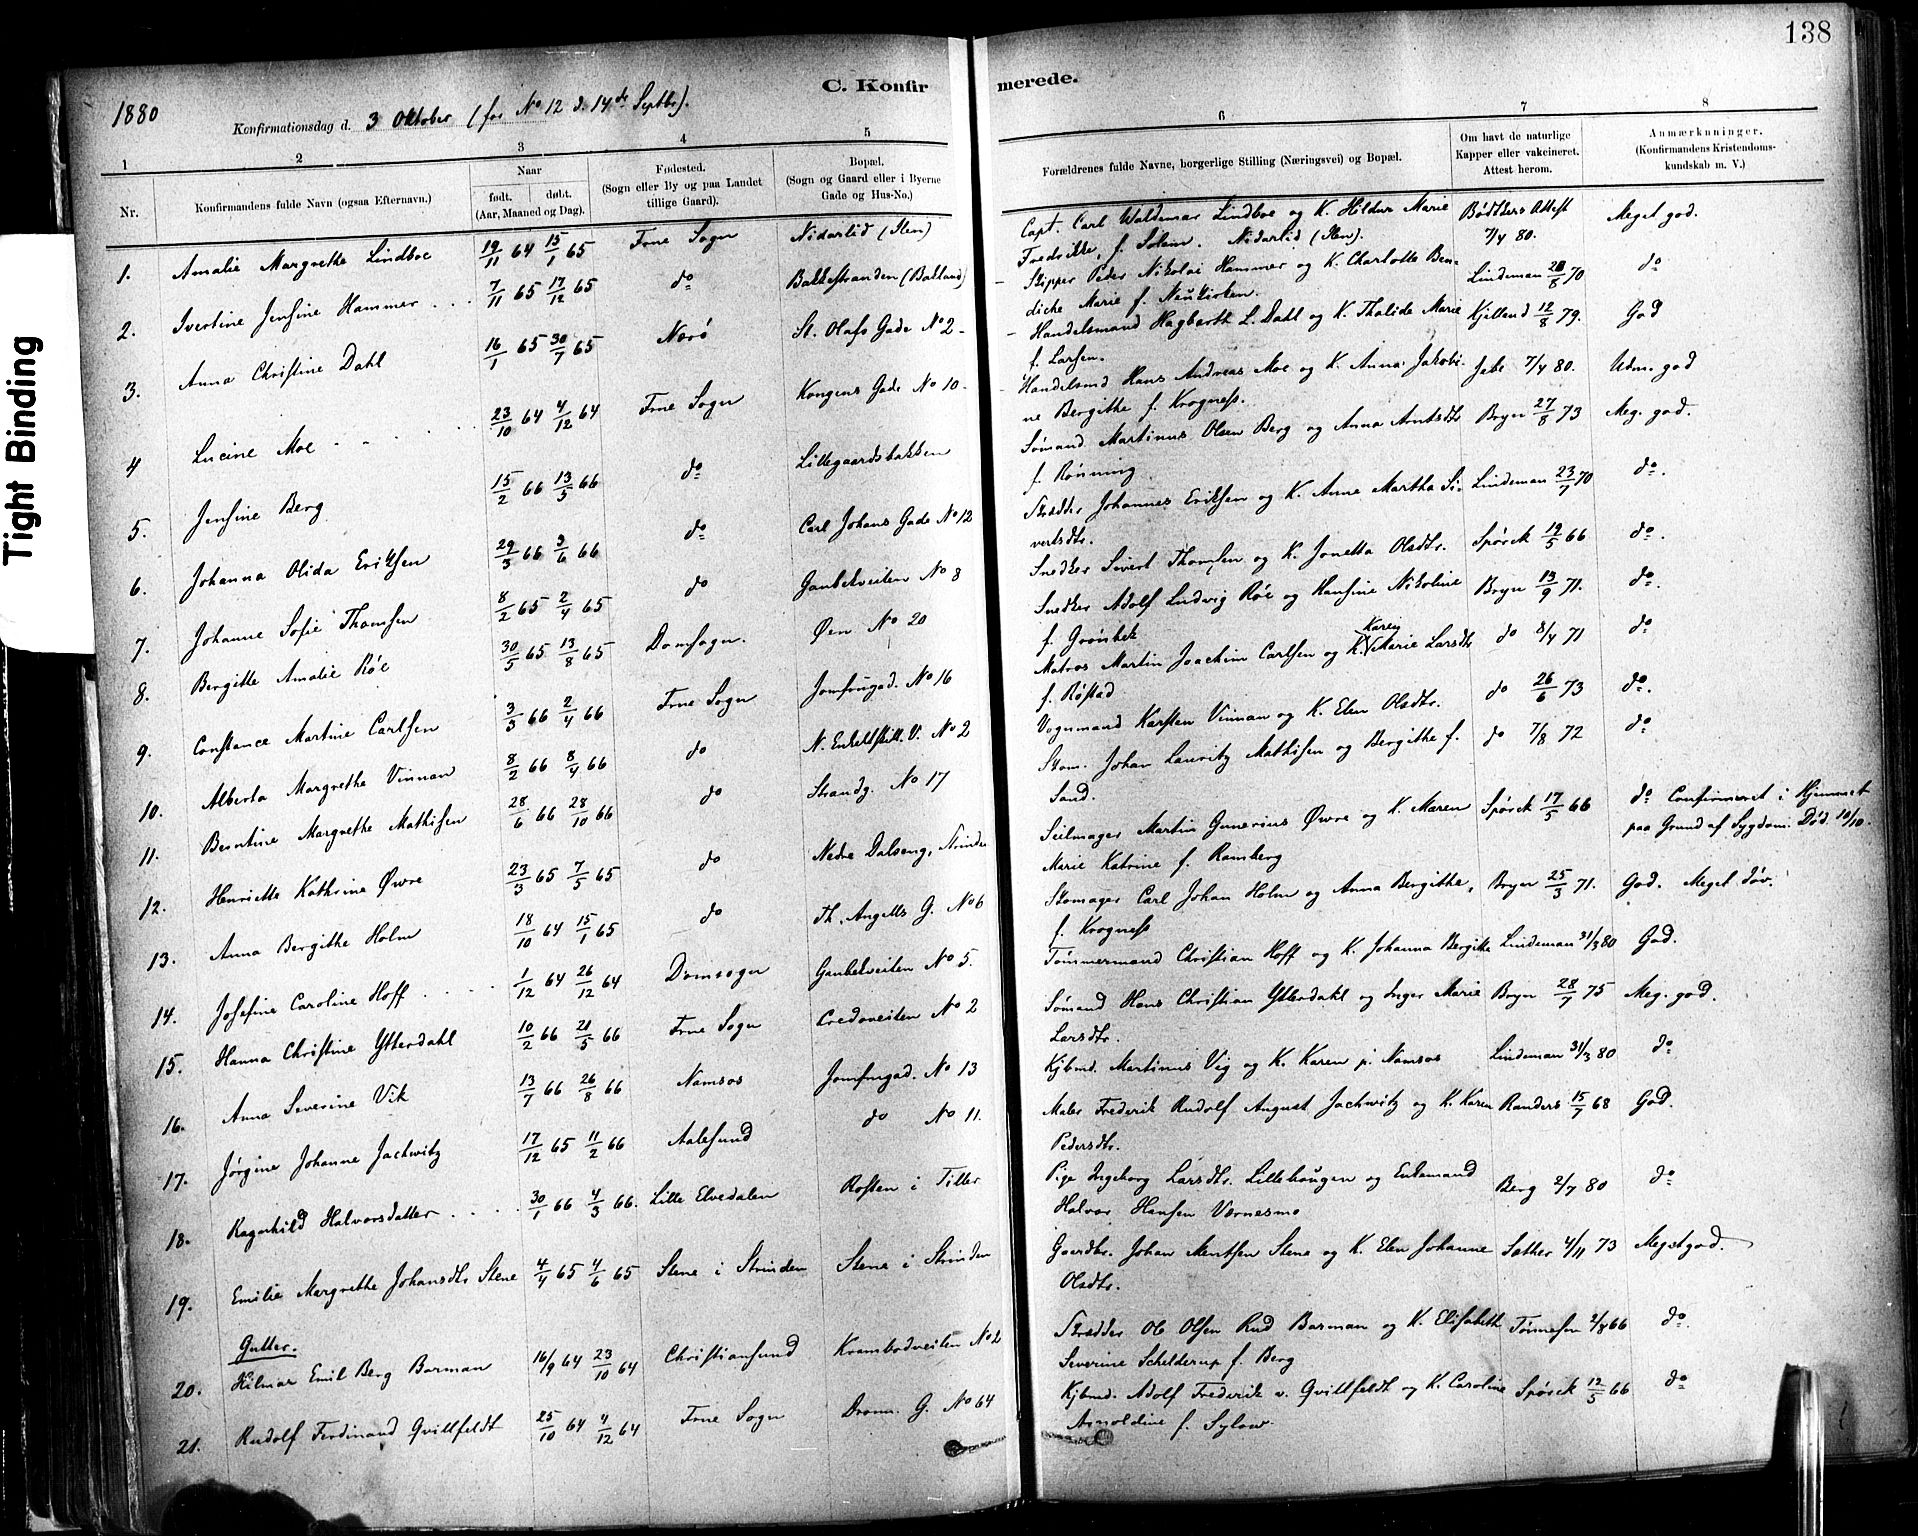 138
C. Konfirmerede.
1880
Konfirmationsdag d. 3 Oktober (for No 12 d. 14de Septbr).
1 2 3 4 5 6 7 8
Nr.
Konfirmandens fulde Navn (ogsaa Efternavn.)
Naar
født. døbt.
(Aar, Maaned og Dag).
Fødested.
(Sogn eller By og paa Landet
tillige Gaard).
Bopæl.
(Sogn og Gaard eller i Byerne
Gade og Hus-No.)
Forældrenes fulde Navne, borgerlige Stilling (Næringsvei) og Bopæl.
Om havt de naturlige
Kapper eller vakcineret.
Attest herom.
Anmærkninger.
(Konfirmandens Kristendoms-
kundskab m. V.)
1. Amalie Margrethe Lindboe 19/11 64 15/1 65 Frue Sogn Nidarlid (Ilen) Capt. Carl Waldemar Lindboe og K. Hildur Marie
Fredrikke, f. Solem. Nidarlid (Ilen). Bødtkers Attest 7/4 80. Meget god.
2. Ivertine Jensine Hammer 7/11 65 17/12 65 do Bakkestranden (Bakland) Skipper Peder Nikolai Hammer og K. Charlotte Ben-
dicke Marie f. Neukirken. Lindeman 28/8 70 do
3. Anna Christine Dahl 16/1 65 30/7 65 Nærø St. Olafs Gade No 2 Handelsmand Hagbarth L. Dahl og K. Thalide Marie
f. Larsen. Kjelland 12/8 79. God
4 Lucine Moe 23/10 64 4/12 64 Frue Sogn Kongens Gade No 10 Handelsmd Hans Andreas Moe og K. Anna Jakobi-
ne Bergithe f. Krogness. 7/4 80. Udm. god
5. Jensine Berg 15/2 66 13/5 66 do Lillegaardsbakken Sømand Martinus Olsen Berg og Anna Arntsdtr
f. Rønning Bryn 27/8 73 Meg. god.
6. Johanna Olida Eriksen 29/3 66 3/6 66 do Carl Johans Gade No 12 Skrædder Johannes Eriksen og K. Anne Martha Si-
vertsdtr. Lindeman 23/7 70 do.
7. Johanne Sofie Thomsen 8/2 65 2/4 65 do Gaubekveiten No 8 Snedker Sivert Thomsen og K. Jonetta Olsdtr. Spørck 12/5 66 do.
8. Bergitte Amalie Röe 30/5 65 13/8 65 Domsogn. Øen No 20 Snedker Adolf Ludvig Röe og Hansine Nikoline
f. Grønbek Bryn 13/9 71. do
9. Constance Martine Carlsen 3/3 66 2/4 66 Frue Sogn Jomfrugad. No 16 Matros Martin Joachim Carlsen og K. Karen Marie Larsdtr
f. Røstad do 8/4 71 do
10. Alberta Margrethe Vinnan 8/2 66 8/4 66 do N. Enkeltskill. V. No 2 Vognmand Karsten Vinnan og K. Elen Olsdtr. do 26/6 73 do.
11. Berntine Margrethe Mathisen 28/6 66 28/10 66 do Strandg. No 17 Skom. Johan Lauritz Mathisen og Bergithe f.
Sand. do 7/8 72 do
12. Henriette Kathrine Øwre 23/3 65 7/5 65 do Nedre Dalseng, Strinden Seilmager Martin Gunerius Øwre og K. Maren
Marie Katrine f. Ramberg Spørck 17/5 66 do Confirmeret i Hjemmet
paa Grund af Sygdom. Død 10/10.
13. Anna Bergithe Holm 18/10 64 15/1 65 do Th. Angells G. No 6 Skomager Carl Johan Holm og Anna Bergithe,
f. Krogness Bryn 25/3 71. God. Meget døv.
14. Josefine Caroline Hoff 1/12 64 26/12 64 Domsogn Gaubekveiten No 5. Tømmermand Christian Hoff og K. Johanna Bergitte Lindeman 31/3 80 God.
15. Hanna Christine Ytterdahl 10/2 66 21/5 66 Frue Sogn Credoveiten No 2 Sømand Hans Christian Ytterdahl og Inger Marie
Larsdtr. Bryn 28/7 75 Meg. god.
16. Anna Severine Vik 13/7 66 26/8 66 Namsos Jomfrugad. No 13 Kjbmd. Martinus Vig og K. Karen p. Namsos Lindeman 31/3 80 do
17. Jørgine Johanne Jachwitz 17/12 65 11/2 66 Aalesund do No 11. Maler Frederik Rudolf August Jachwitz og K. Karen
Pedersdtr. Randers 15/7 68 God.
18. Ragnhild Halvorsdatter 30/1 66 4/3 66. Lille Elvedalen Rosten i Tiller Pige Ingeborg Larsdtr. Lillehaugen og Enkemand
Halvor Hansen Vornesmo Berg 2/7 80 do
19. Emilie Margrethe Johansdtr Stene 4/4 65 4/6 65 Stene i Strinden Stene i Strinden Gaardbr. Johan Arntsen Stene og K. Elen Johanne
Olsdtr. Sæther 4/11 73 Meget god.
Gutter.
20. Hilmar Emil Berg Barman 16/9 64 23/10 64 Christiansund Krambodveiten No 2 Skrædder Ole Olsen Rud Barman og K. Elisabeth
Severine Schelderup f. Berg Tønnesen 2/8 66 do.
21. Rudolf Ferdinand Qvillfeldt 25/10 64 4/12 64 Frue Sogn Dronn. G. No 64 Kjbmd. Adolf Frederik v. Qvillfeldt og K. Caroline
Arnoldine f. Sylow. Spørck 12/5 66 do
Tight Binding